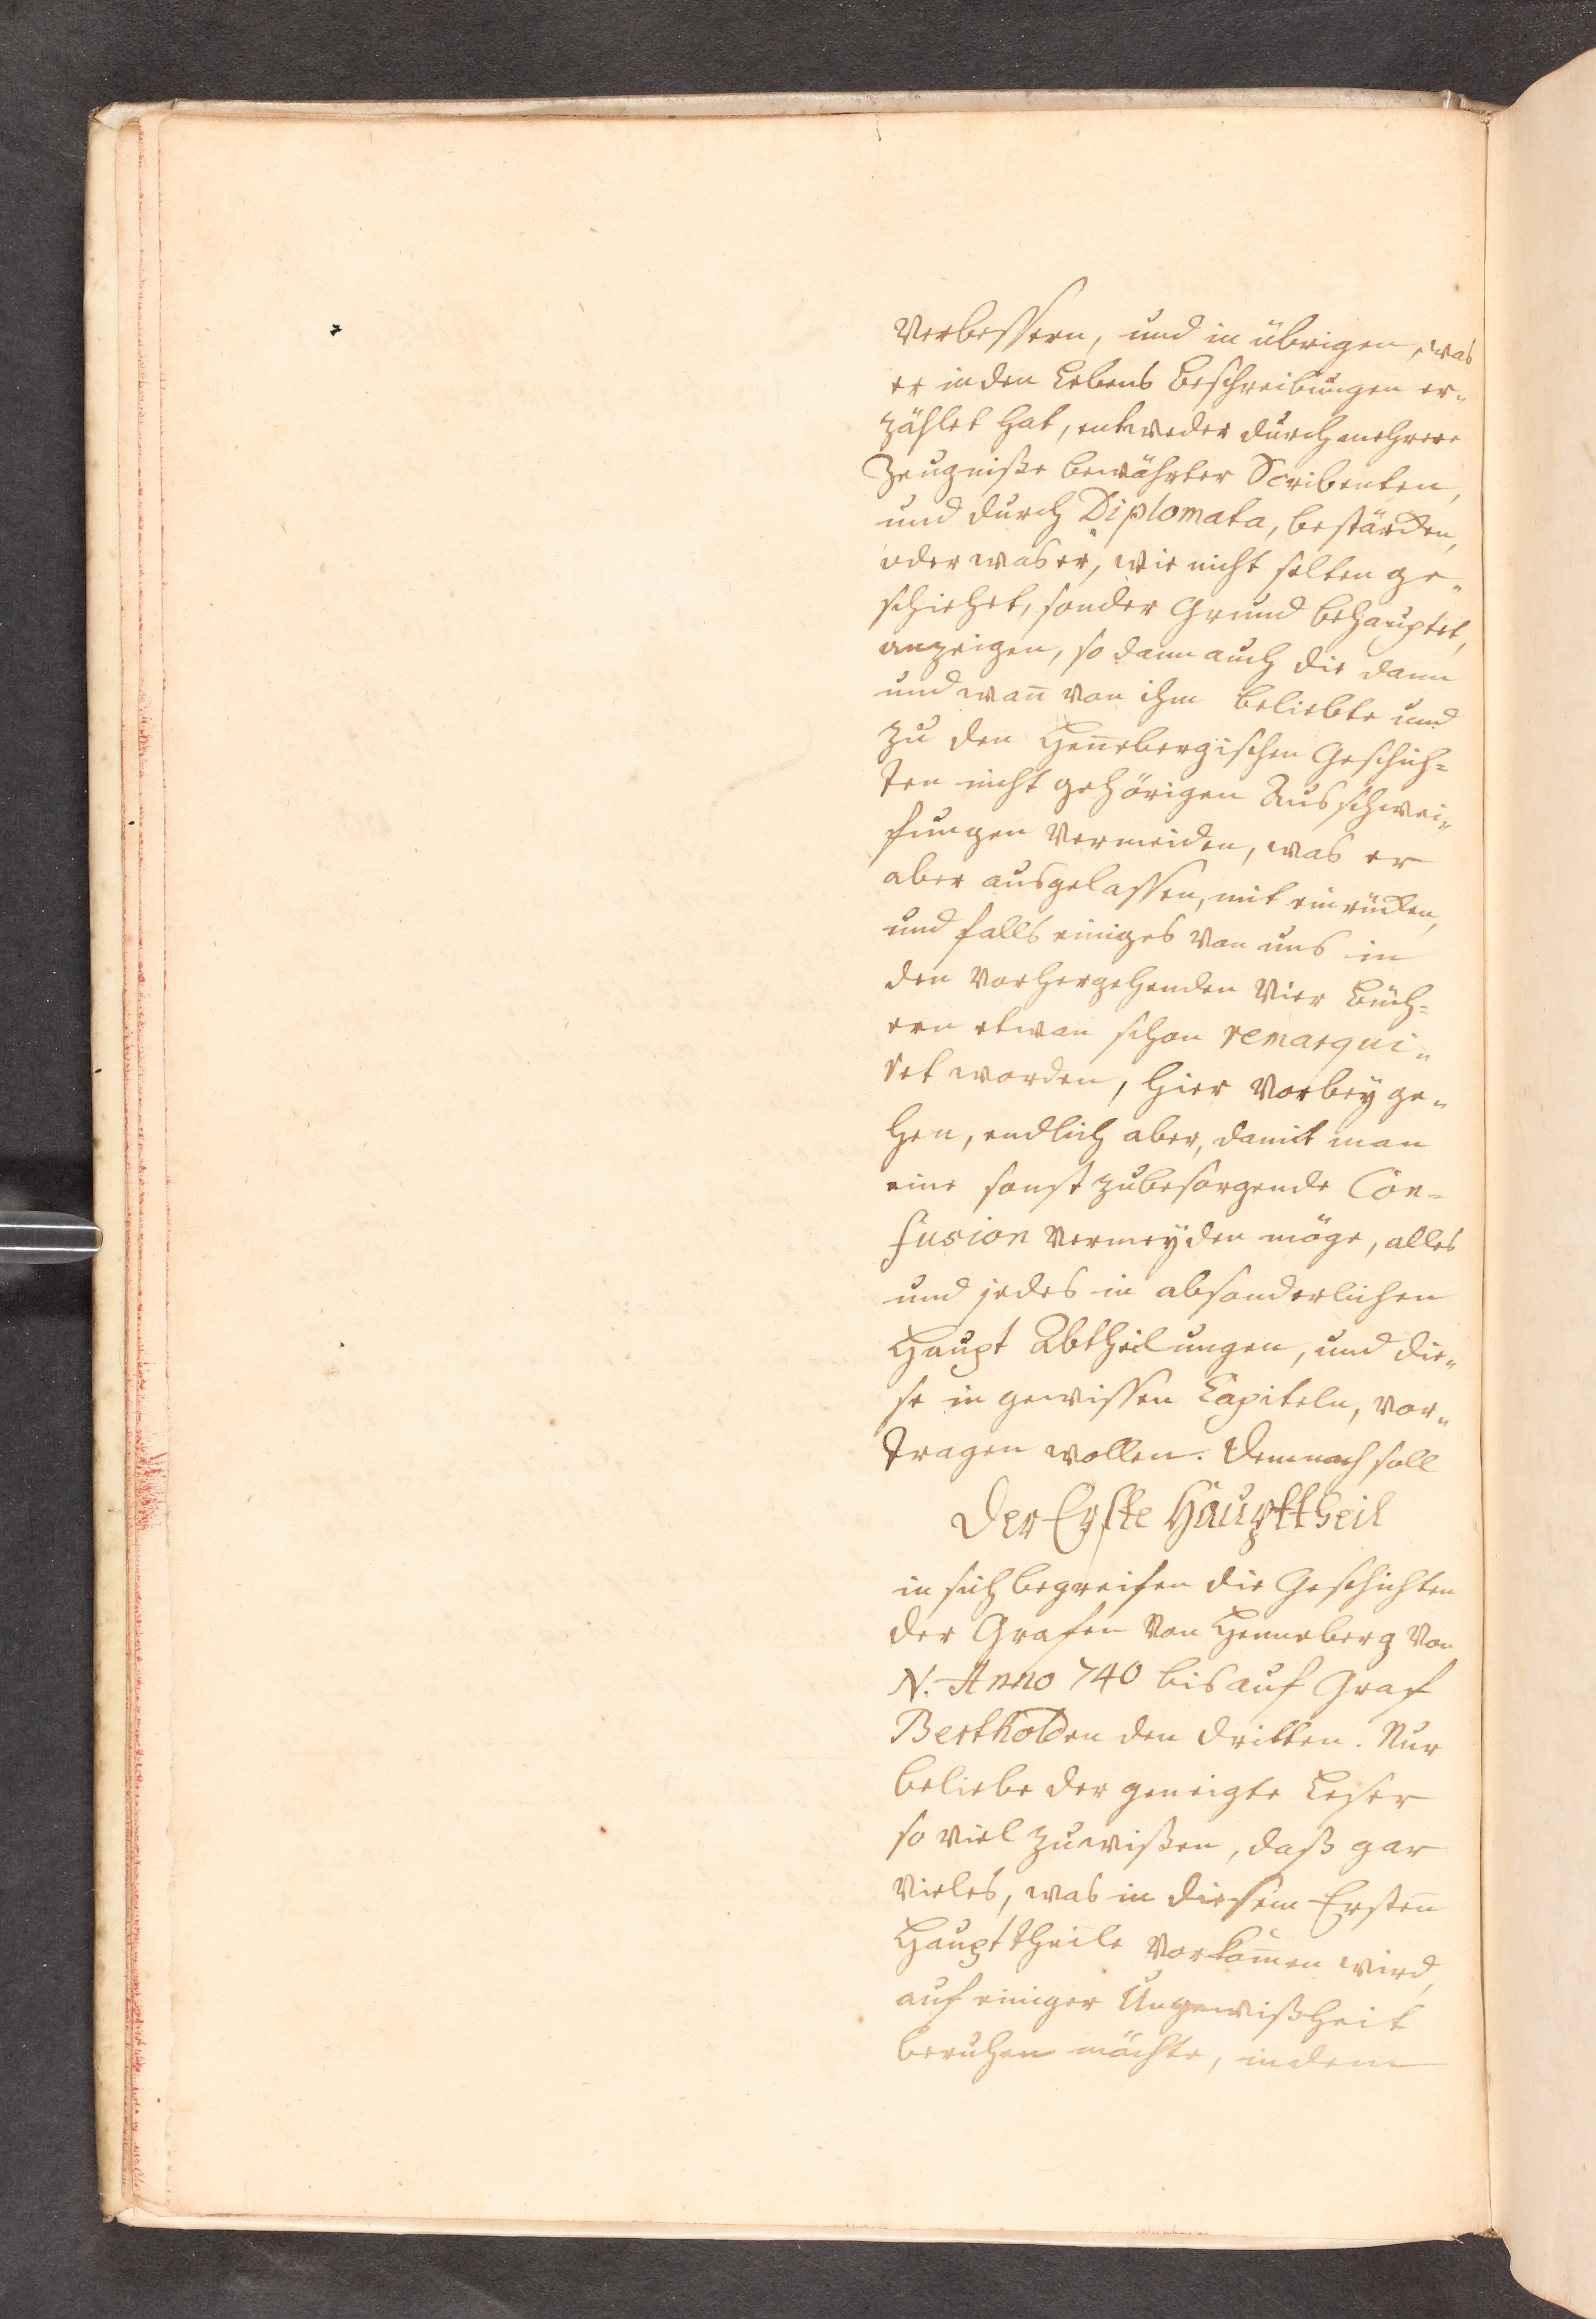 verbessern, und in übrigen, was
er in den Lebens Beschreibungen er„
zählet hat, entweder durch mehrere
Zeugniße bewährter Scribenten,
und durch Diplomata, bestärcken,
oder was er, wie nicht selten ge„
schiehet, sonder Grund behauptet,
anzeigen, so dann auch die dann
und wan̄ von ihm beliebte und
zu den Hen̄ebergischen Geschich=
ten nicht gehörigen Ausschwei„
fungen vermeiden, was er
aber ausgelassen, mit einrücken,
und falls einiges von uns in
den vorhergehenden vier Büch=
ern etwan schon remarqui„
ret worden, hier vorbey ge„
hen, endlich aber, damit man
eine sonst zubesorgende Con=
fusion vermeyden möge, alles
und jedes in absonderlichen
Haupt Abtheilungen, und die„
se in gewissen Capiteln, vor„
tragen wollen. Demnach soll
Der Erste Haupttheil
in sich begreifen die Geschichten
der Grafen von Henneberg von
N. Anno 740 bis auf Graf
Bertholden den dritten. Nur
beliebe der geneigte Leser
so viel zuwißen, daß gar
vieles, was in diesem Ersten̄
Haupttheile vorkom̄en wird,
auf einiger Ungewißheit
beruhen möchte, indem